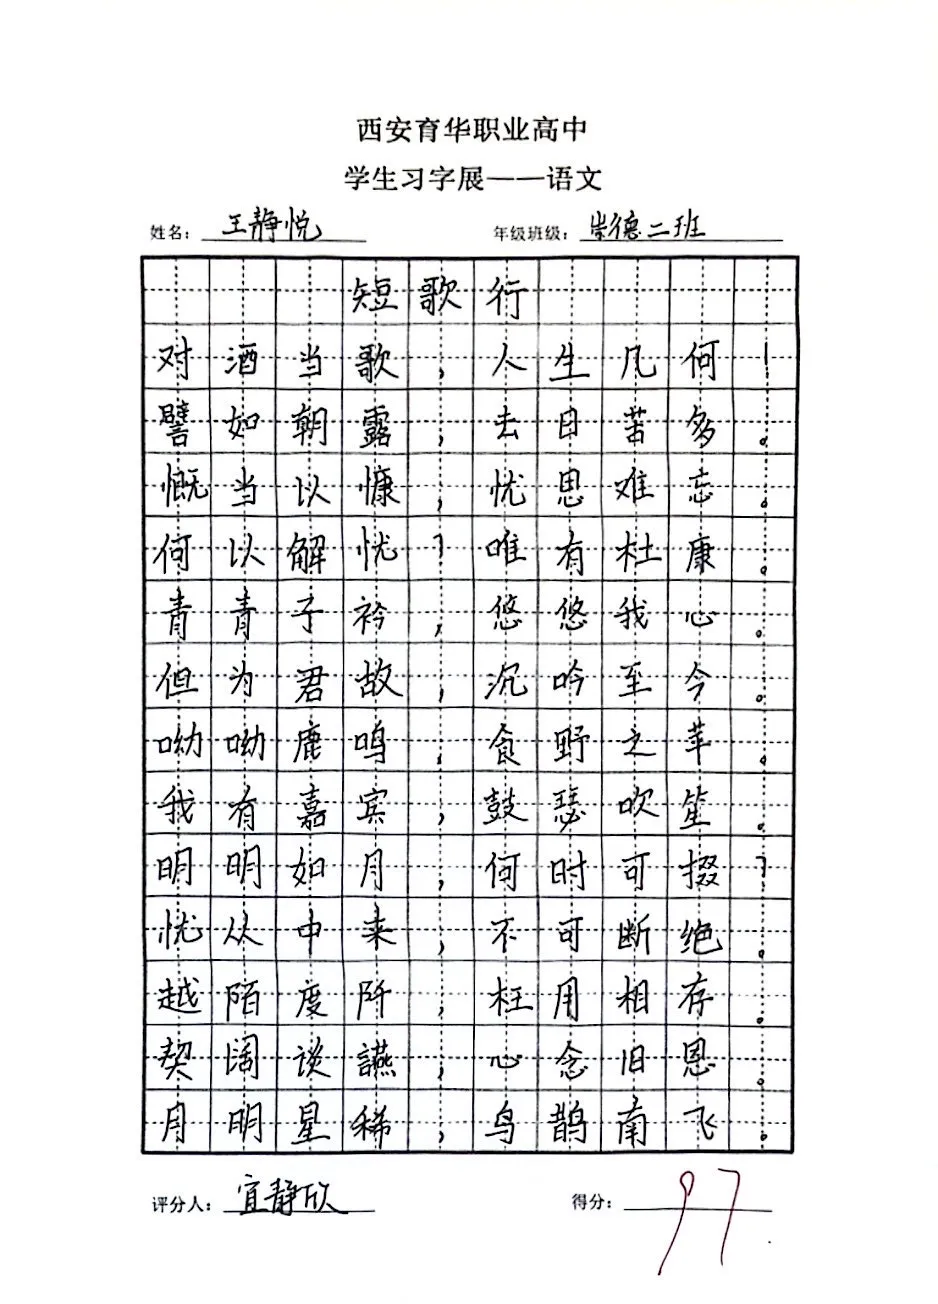 西安育华职业高中
学生习字展——语文
姓名：王静悦 年级班级：崇德二班
短歌行
对酒当歌，人生几何！
譬如朝露，去日苦多。
慨当以慷，忧思难忘。
何以解忧？唯有杜康。
青青子衿，悠悠我心。
但为君故，沉吟至今。
呦呦鹿鸣，食野之苹。
我有嘉宾，鼓瑟吹笙。
明明如月，何时可掇？
忧从中来，不可断绝。
越陌度阡，枉用相存。
契阔谈讌，心念旧恩。
月明星稀，乌鹊南飞。
评分人：宜静欣 得分：97